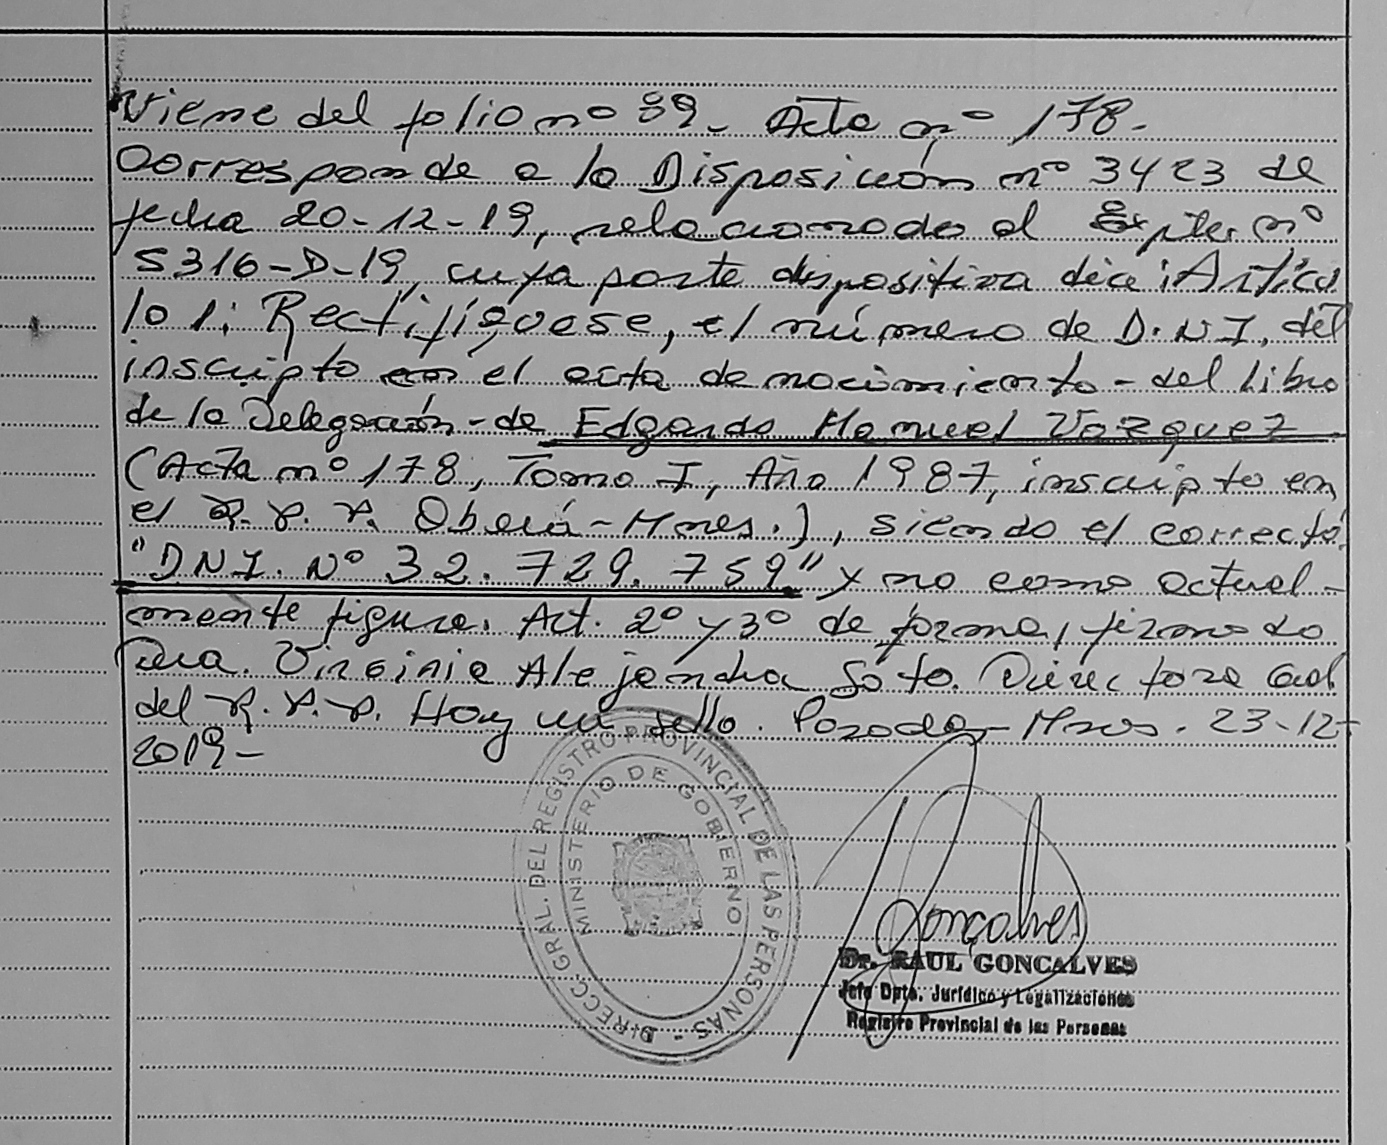 Viene del folio nº 89. Acta nº 178.
Corresponde a la Disposición nº 3423 de
fecha 20-12-19, relacionado al Expte. nº
5316-D-19, cuya parte dispositiva dice: Artícu
lo 1: Rectifíquese, el número de D.N.I. del
inscripto en el acta de nacimiento - del Libro
de la Delegación - de Edgardo Manuel Vazquez
(Acta nº 178, Tomo I, Año 1987, inscripto en
el R.P.P. Oberá - Mnes.), siendo el correcto
"DNI. Nº 32.729.759" y no como actual-
mente figura. Art. 2º y 3º de forma, firmado
Dra. Virginia Alejandra Soto. Directora Gral.
del R.P.P. Hay un sello. Posadas - Mnes. 23-12-
2019-
DIRECC. GRAL. DEL REGISTRO PROVINCIAL DE LAS PERSONAS -
MINISTERIO DE GOBIERNO
Gonçalves
Dr. RAUL GONCALVES
Jefe Dpto. Jurídico y Legalizaciones
Registro Provincial de las Personas